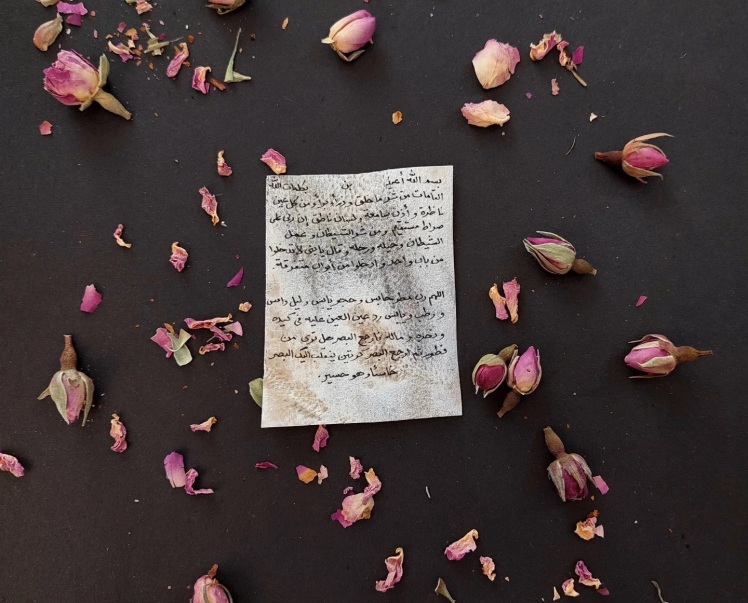 بسم الله أعيذ بن بكلمات الله
التامات من شر ما خلق وذرأ وبرأ ومن كل عين
ناظرة وأذن سامعة ولسان ناطق إن ربي على
صراط مستقيم ومن شر الشيطان وعمل
الشيطان وخيله ورجله وقال يا بني لا تدخلوا
من باب واحد وادخلوا من أبواب متفرقة
اللهم رب مطر حابس وحجر يابس وليل دامس
ورطب ويابس رد عين العين عليه في كبده
ونحره وماله فارجع البصر هل ترى من
فطور ثم ارجع البصر كرتين ينقلب اليك البصر
خاسئا وهو حسير.